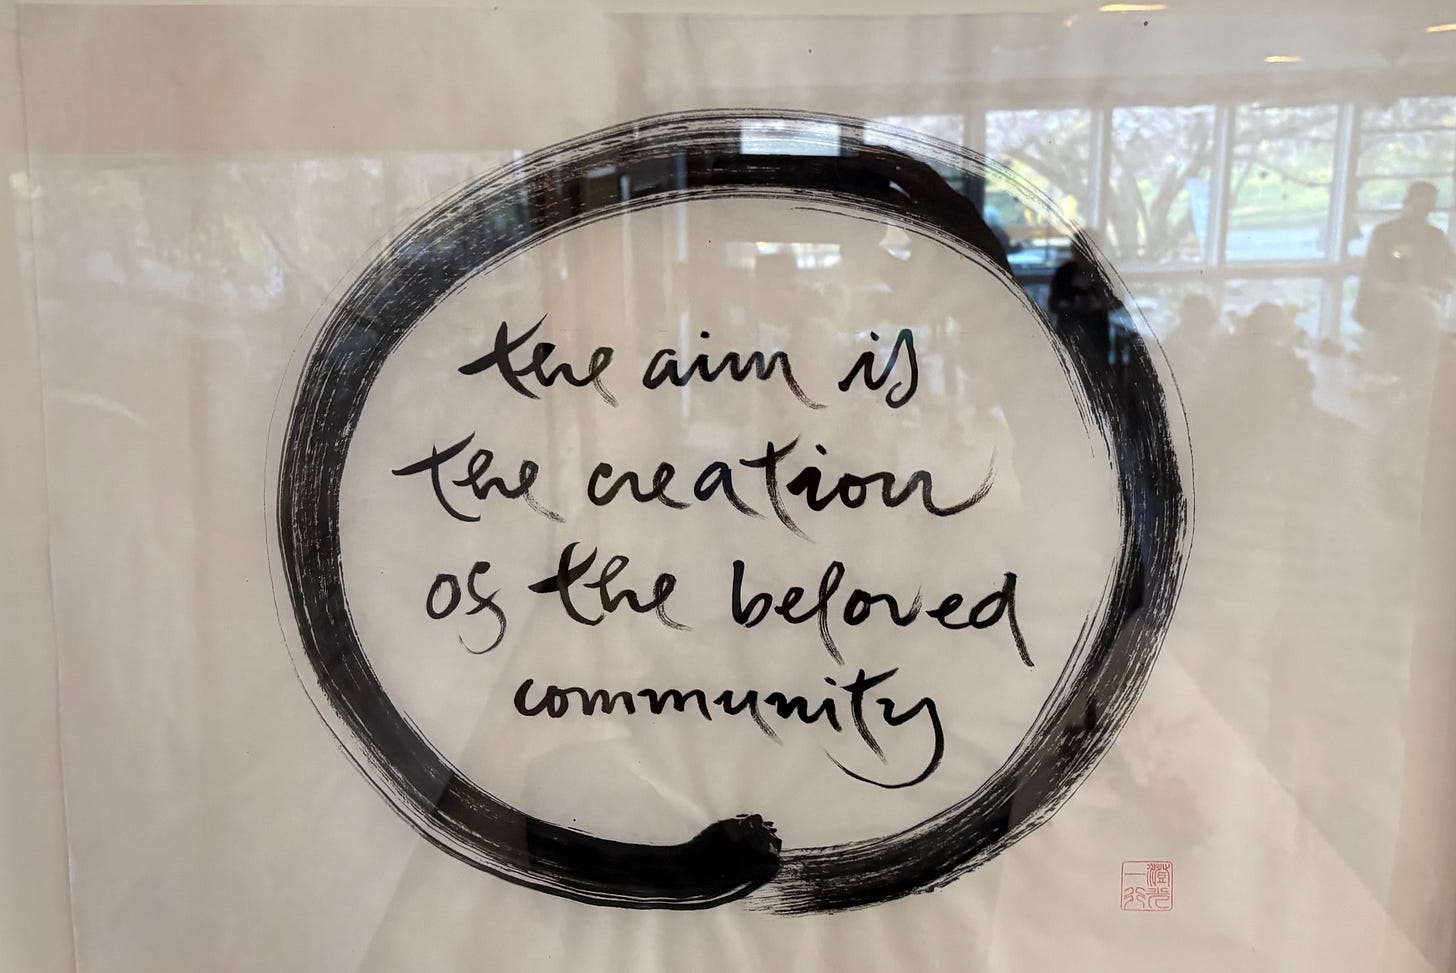 the aim is
the creation
of the beloved
community
澄光
一行